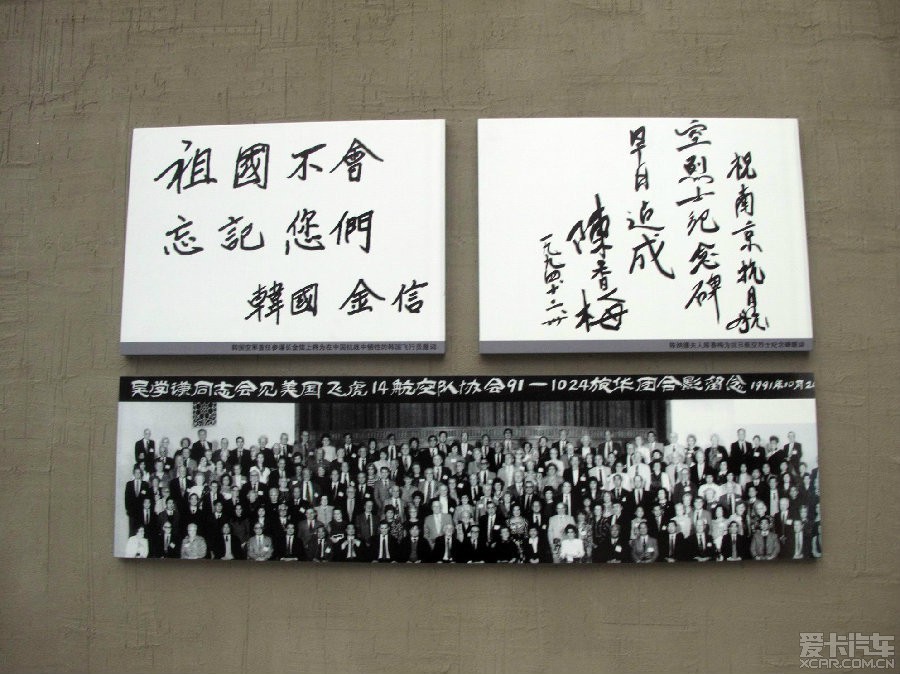 祖國不會
忘記您們
韓國 金信
祝南京抗日航
空烈士紀念碑
早日迠成
陳香梅
一九九四、十二、廿
陈纳德夫人陈香梅为抗日航空烈士纪念碑题词
吴学谦同志会见美国飞虎14航空队协会91－1024旅华团合影留念 1991年10月2
爱卡汽车
XCAR.COM.CN